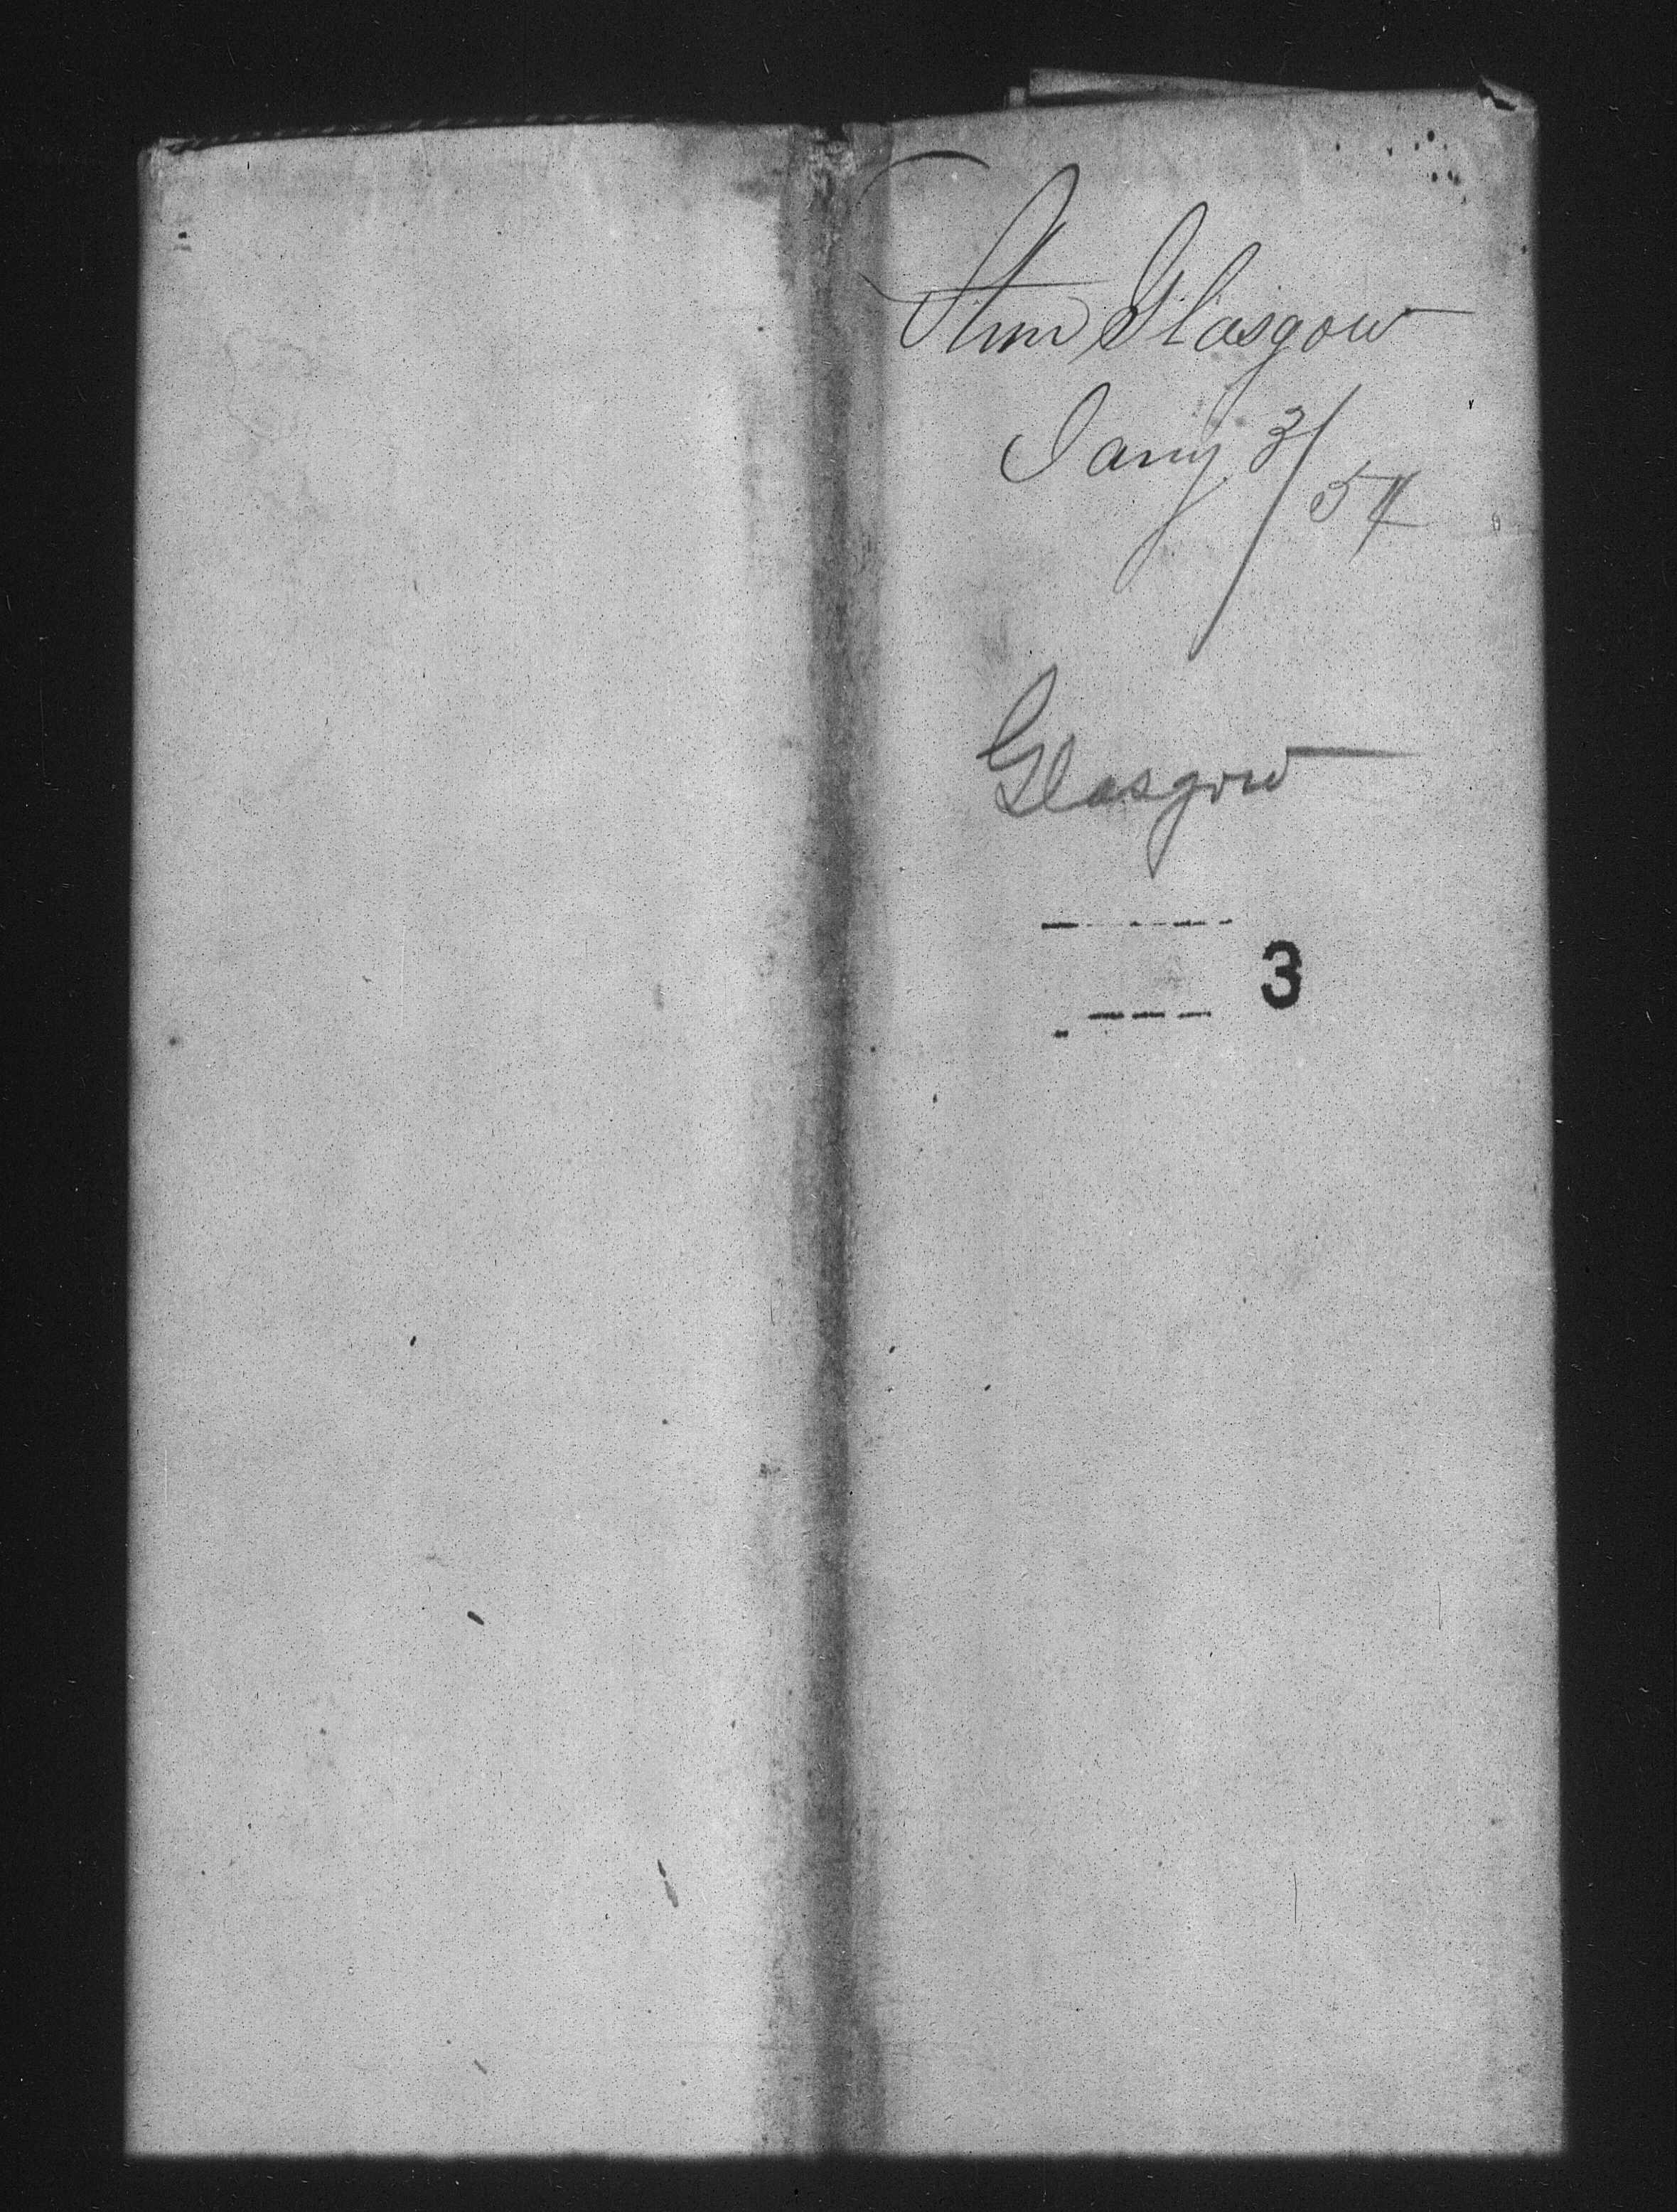 Stmr Glasgow
Jany 3/54
Glasgow
3